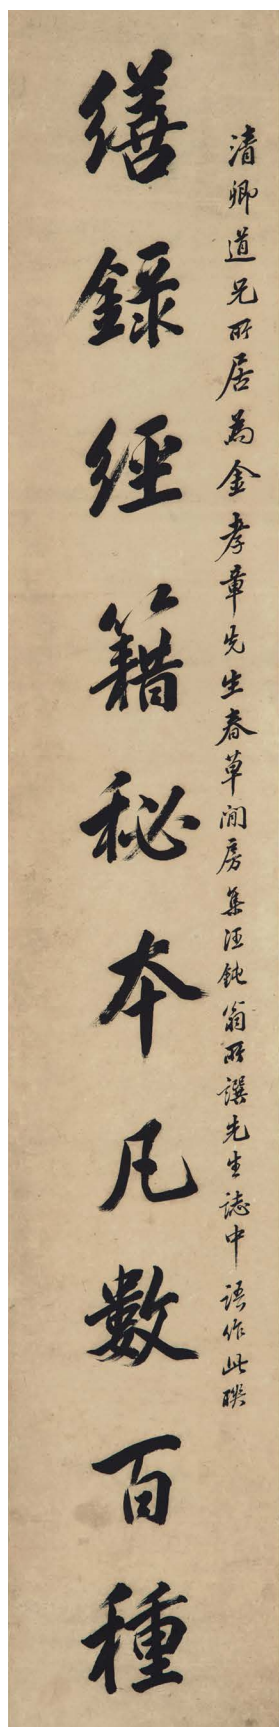 清卿道兄所居為金孝章先生春草閒房集汪鈍翁所譔先生誌中語作此聯
繕錄經籍秘本凡數百種